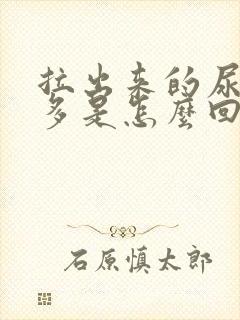 拉出来的尿
多是怎麽回
石原慎太郎